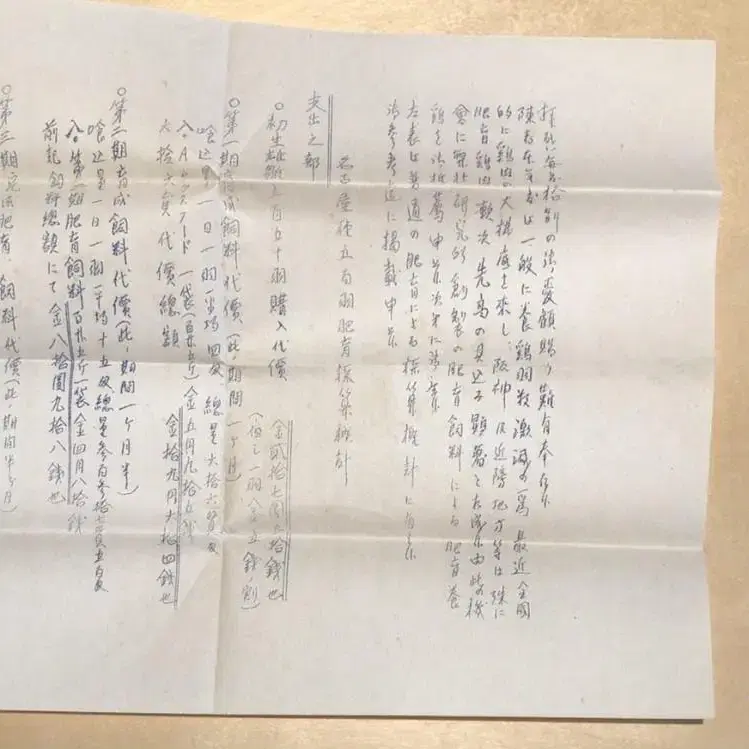 拝啓毎々格別の御愛顧賜り難有奉存候
陳者本年度は一般に養鶏羽数激減の為最近全国
的に鶏肉の大拂底を来し、阪神及近隣地方等は殊に
肥育鶏肉 先高の見込る顕著と相成候由此の機
會に弊社研究所創製の肥育飼料による肥育養
鶏を御推薦申候次第に御座候
左表は普通の肥育による採算概計に有之候
御参考迄に掲載申候
名古屋種五百羽肥育採算概計
支出之部
○初生雛五百五十羽購入代價
金貳拾七円五拾銭也
(但し一羽金五銭割)
○第一期育成飼料代價(此ノ期間一ヶ月)
喰込量一日一羽平均四匁 総量六拾六貫匁
入、Aチックフード一袋(百廿五斤)金五円九拾五銭
六拾六貫代價総額 金拾九円六拾四銭也
○第二期育成飼料代價(此ノ期間一ヶ月半)
喰込量一日一羽平均十五匁総量参百参拾七貫五百匁
入、第一期肥育飼料百廿五斤一袋金四円八拾銭
前記飼料総額にて金八拾圓九拾八銭也
○第三期 肥育飼料代價(此ノ期間半ヶ月)